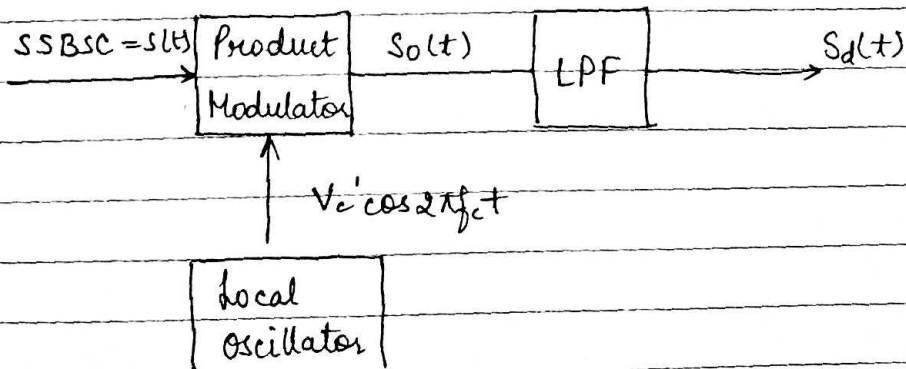 SSBSC = S(t)
Product
Modulator
S₀(t)
LPF
S_d(t)
V_c' cos 2πf_c t
Local
Oscillator